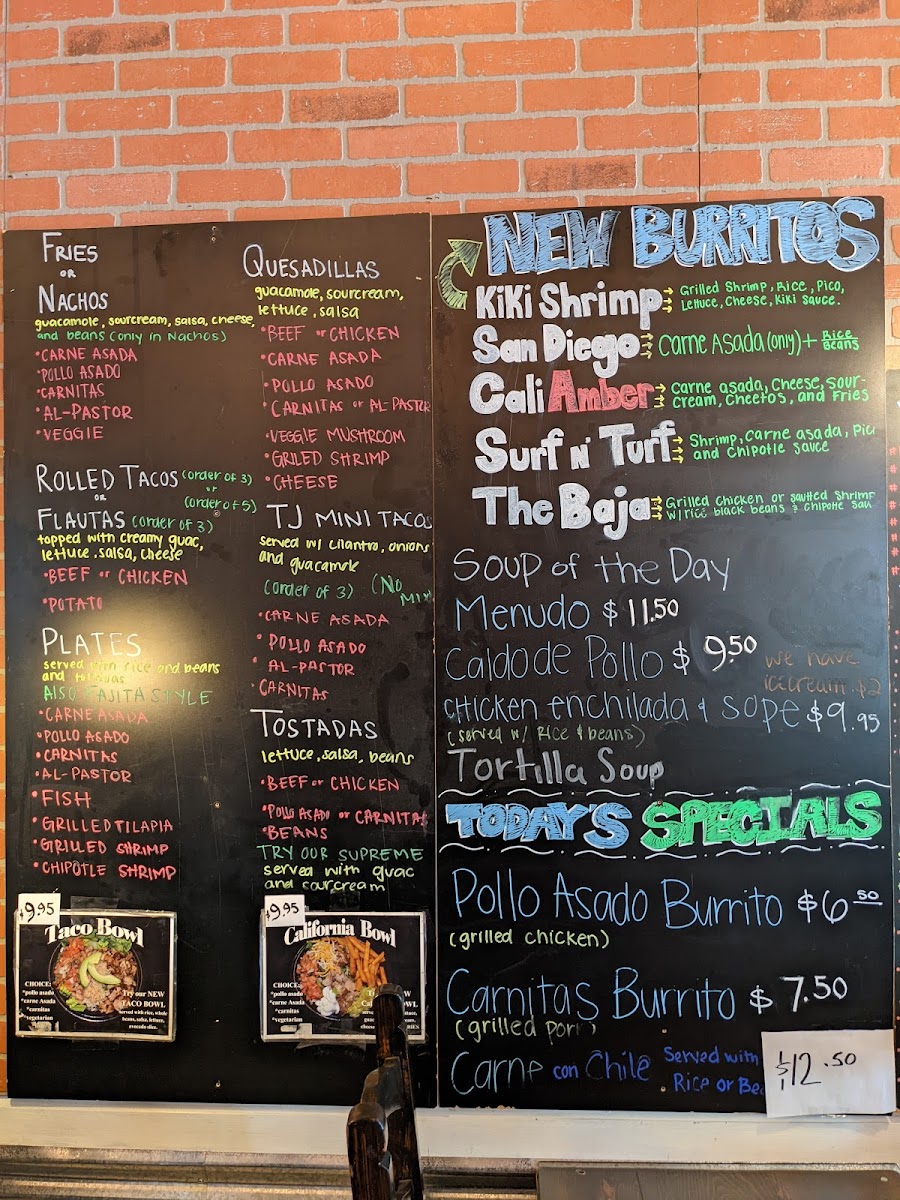 FRIES
OR
NACHOS
guacamole, sourcream, salsa, cheese,
and beans (only in Nachos)
•CARNE ASADA
•POLLO ASADO
•CARNITAS
•AL-PASTOR
•VEGGIE
ROLLED TACOS (order of 3)
or
(order of 5)
OR
FLAUTAS (order of 3)
topped with creamy guac,
lettuce, salsa, cheese
•BEEF or CHICKEN
•POTATO
PLATES
served with rice and beans
and tortillas
ALSO FAJITA STYLE
•CARNE ASADA
•POLLO ASADO
•CARNITAS
•AL-PASTOR
•FISH
•GRILLED TILAPIA
•GRILLED SHRIMP
•CHIPOTLE SHRIMP
$9.95
Taco Bowl
CHOICE:
*pollo asado
*carne Asada
*carnitas
*vegetarian
Try our NEW
TACO BOWL
served with rice, whole
beans, salsa, lettuce,
avocado slice.
QUESADILLAS
guacamole, sourcream,
lettuce, salsa
•BEEF or CHICKEN
•CARNE ASADA
•POLLO ASADO
•CARNITAS or AL-PASTOR
•VEGGIE MUSHROOM
•GRILED SHRIMP
•CHEESE
TJ MINI TACOS
served w/ cilantro, onions
and guacamole
(order of 3) (No
MIX
•CARNE ASADA
•POLLO ASADO
•AL-PASTOR
•CARNITAS
TOSTADAS
lettuce, salsa, beans
•BEEF or CHICKEN
•POLLO ASADO or CARNITAS
•BEANS
TRY OUR SUPREME
served with guac
and sourcream
$9.95
California Bowl
CHOICE:
*pollo asado
*carne Asada
*carnitas
*vegetarian
NEW BURRITOS
KiKi Shrimp → Grilled Shrimp, Rice, Pico,
Lettuce, Cheese, Kiki Sauce.
San Diego → Carne Asada (only) + Rice
Beans
Cali Amber → carne asada, cheese, sour-
cream, cheetos, and Fries
Surf N' Turf → Shrimp, Carne asada, Pic
and Chipotle sauce
The Baja → Grilled Chicken or sautted Shrimp
w/rice black beans & chipotle sau
Soup of the Day
Menudo $11.50
Caldo de Pollo $9.50
we have
icecream $2
chicken enchilada & sope $9.95
(served w/ Rice & beans)
Tortilla Soup
TODAY'S SPECIALS
Pollo Asado Burrito $6 50
(grilled chicken)
Carnitas Burrito $7.50
(grilled pork)
Carne con Chile Served with
Rice or Be
$12.50